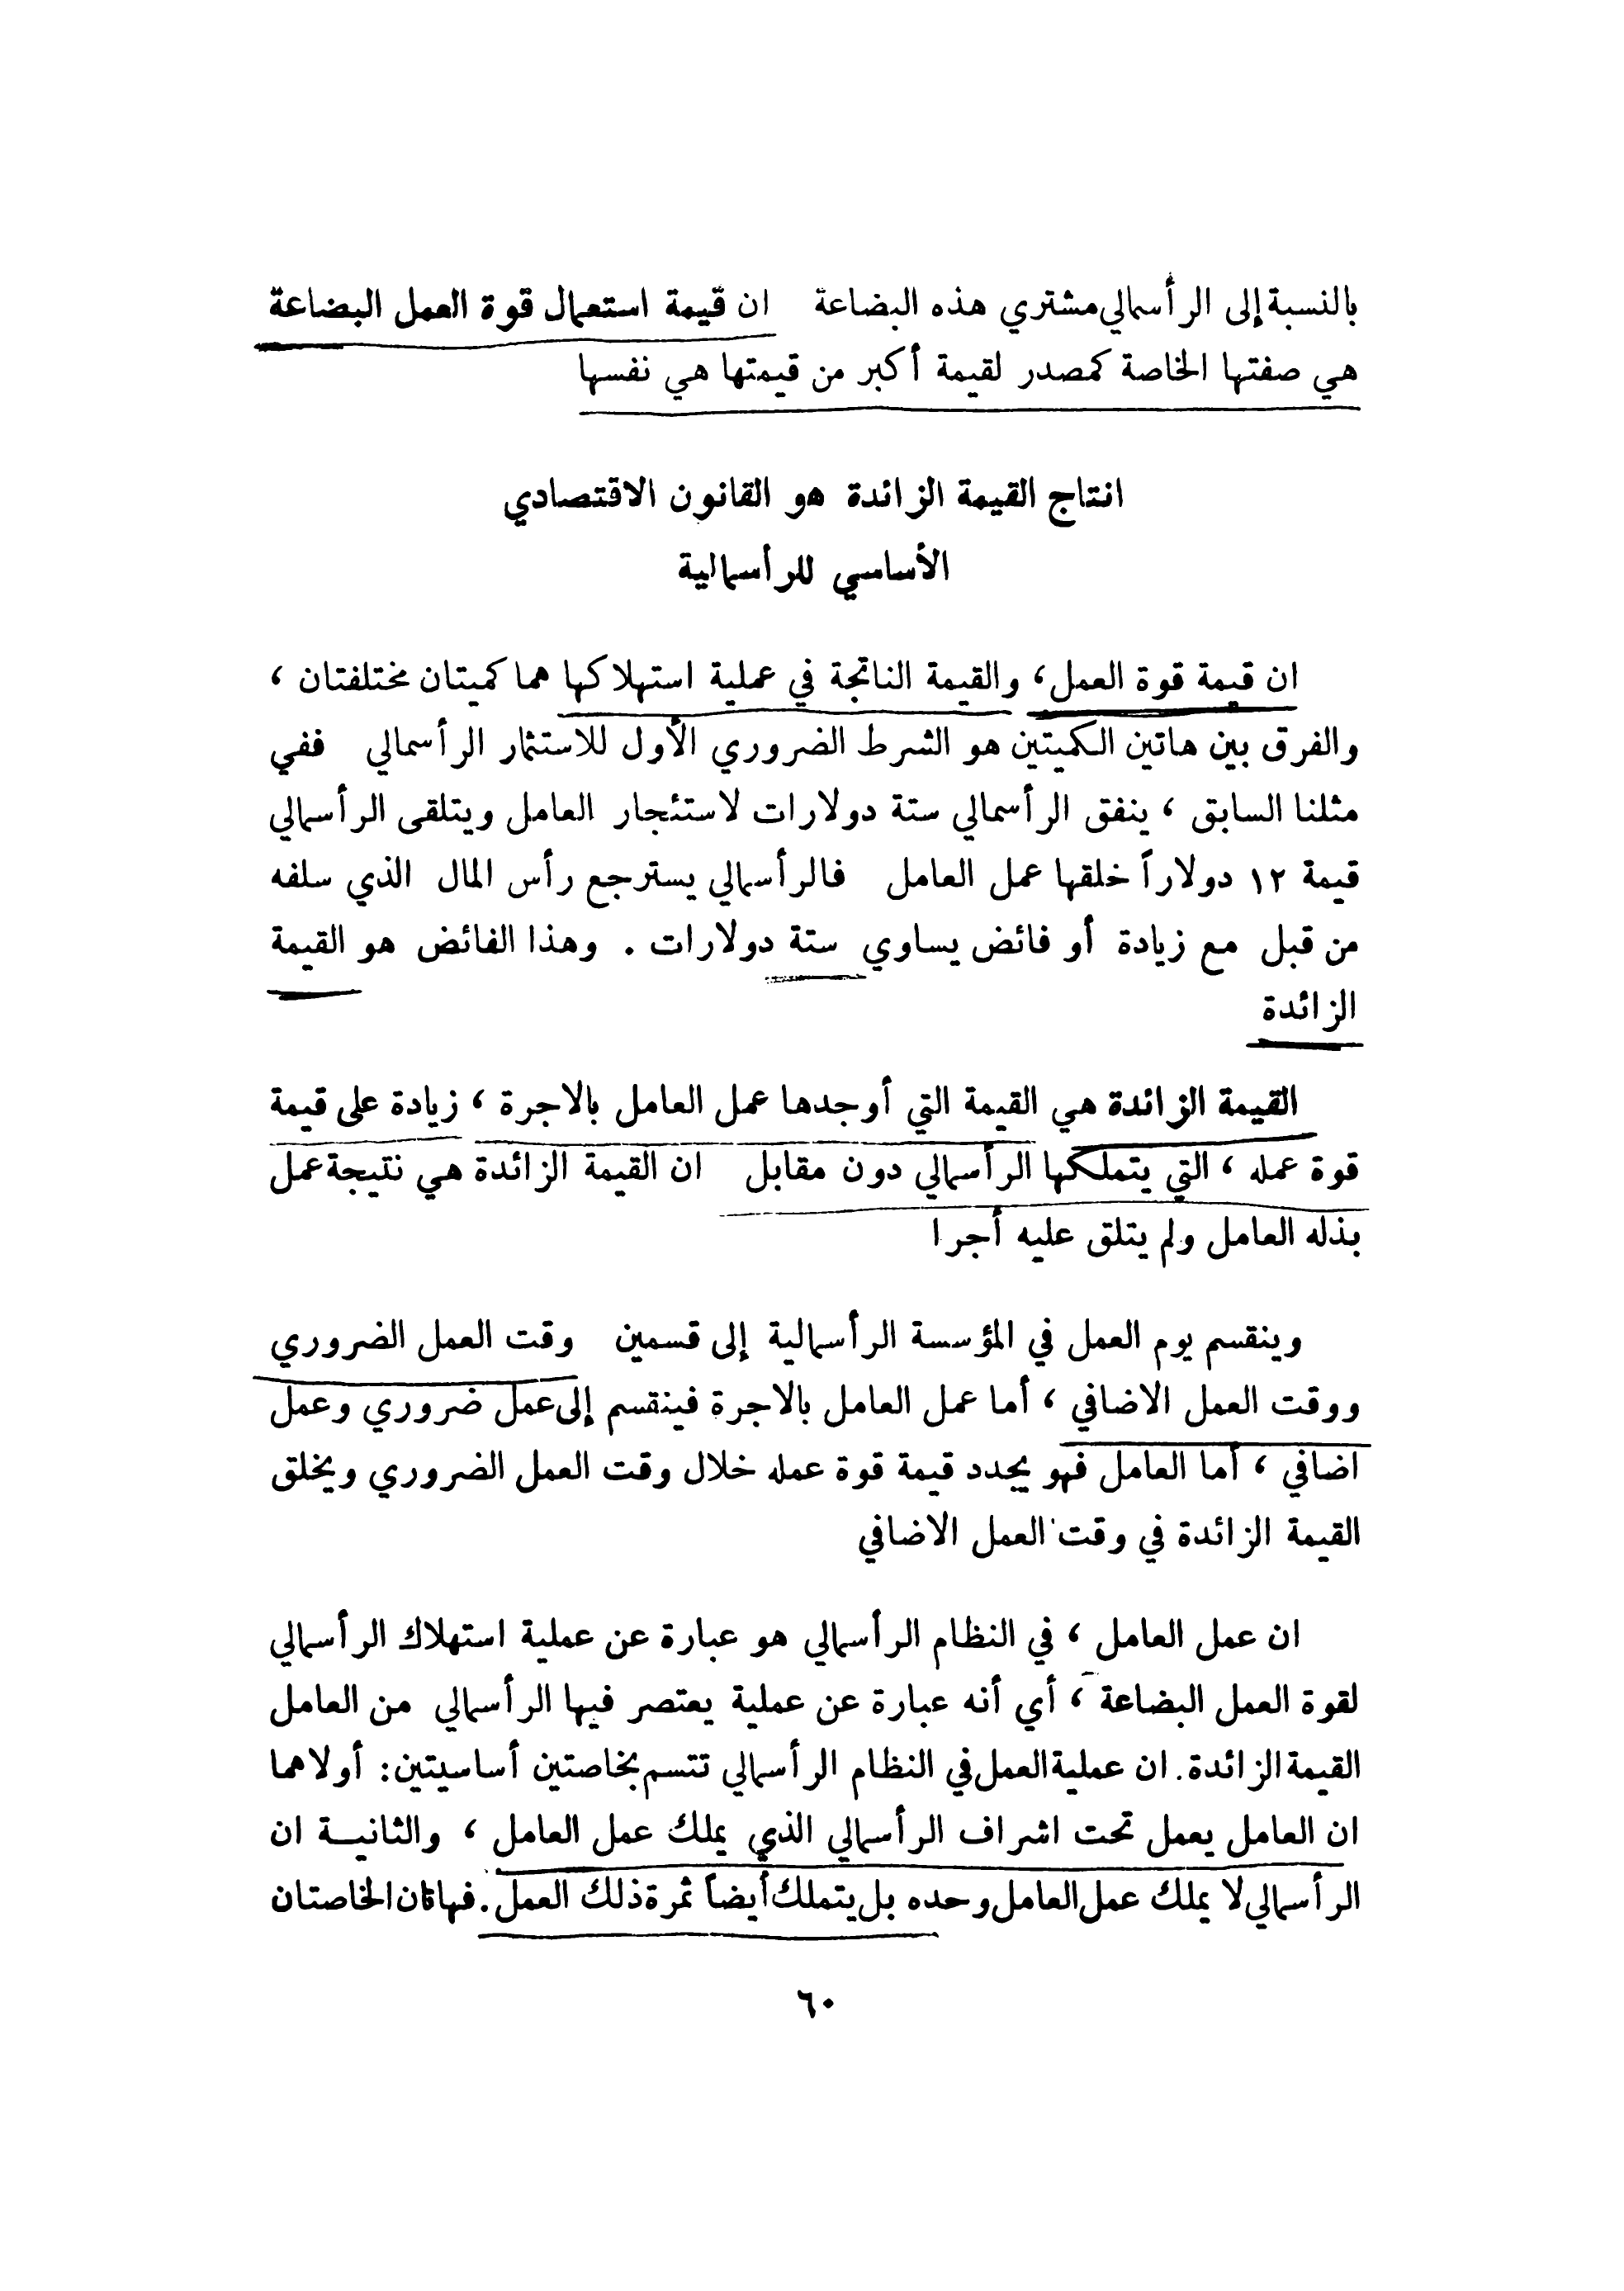 بالنسبة إلى الرأسمالي مشتري هذه البضاعة ان قيمة استعمال قوة العمل البضاعة
هي صفتها الخاصة كمصدر لقيمة أكبر من قيمتها هي نفسها
انتاج القيمة الزائدة هو القانون الاقتصادي
الأساسي للرأسمالية
ان قيمة قوة العمل ، والقيمة الناتجة في عملية استهلاكها هما كميتان مختلفتان ،
والفرق بين هاتين الكميتين هو الشرط الضروري الأول للاستثمار الرأسمالي ففي
مثلنا السابق ، ينفق الرأسمالي ستة دولارات لاستئجار العامل ويتلقى الرأسمالي
قيمة ١٢ دولاراً خلقها عمل العامل فالرأسمالي يسترجع رأس المال الذي سلفه
من قبل مع زيادة أو فائض يساوي ستة دولارات . وهذا الفائض هو القيمة
الزائدة
القيمة الزائدة هي القيمة التي أوجدها عمل العامل بالاجرة ، زيادة على قيمة
قوة عمله ، التي يتملكها الرأسمالي دون مقابل ان القيمة الزائدة هي نتيجة عمل
بذله العامل ولم يتلق عليه أجرا
وينقسم يوم العمل في المؤسسة الرأسمالية إلى قسمين وقت العمل الضروري
ووقت العمل الاضافي ، أما عمل العامل بالاجرة فينقسم إلى عمل ضروري وعمل
اضافي ، أما العامل فهو يجدد قيمة قوة عمله خلال وقت العمل الضروري ويخلق
القيمة الزائدة في وقت العمل الاضافي
ان عمل العامل ، في النظام الرأسمالي هو عبارة عن عملية استهلاك الرأسمالي
لقوة العمل البضاعة ، أي أنه عبارة عن عملية يعتصر فيها الرأسمالي من العامل
القيمة الزائدة. ان عملية العمل في النظام الرأسمالي تتسم بخاصتين أساسيتين: أولاهما
ان العامل يعمل تحت اشراف الرأسمالي الذي يملك عمل العامل ، والثانيــة ان
الرأسمالي لا يملك عمل العامل وحده بل يتملك أيضاً ثمرة ذلك العمل . فهاتان الخاصتان
٦٠